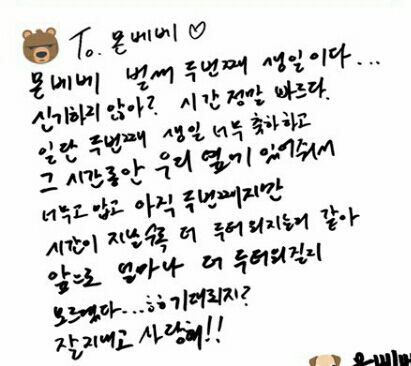 To. 몬베베 ♡
몬베베 벌써 두번째 생일이다...
신기하지 않아? 시간 정말 빠르다.
일단 두번째 생일 너무 축하하고
그 시간동안 우리 옆에 있어줘서
너무 고맙고 아직 두번째지만
시간이 지날수록 더 두터워지는거 같아
앞으로 얼마나 더 두터워질지
모르겠다...ㅎㅎ 기대되지?
잘지내고 사랑해!!
몬베베